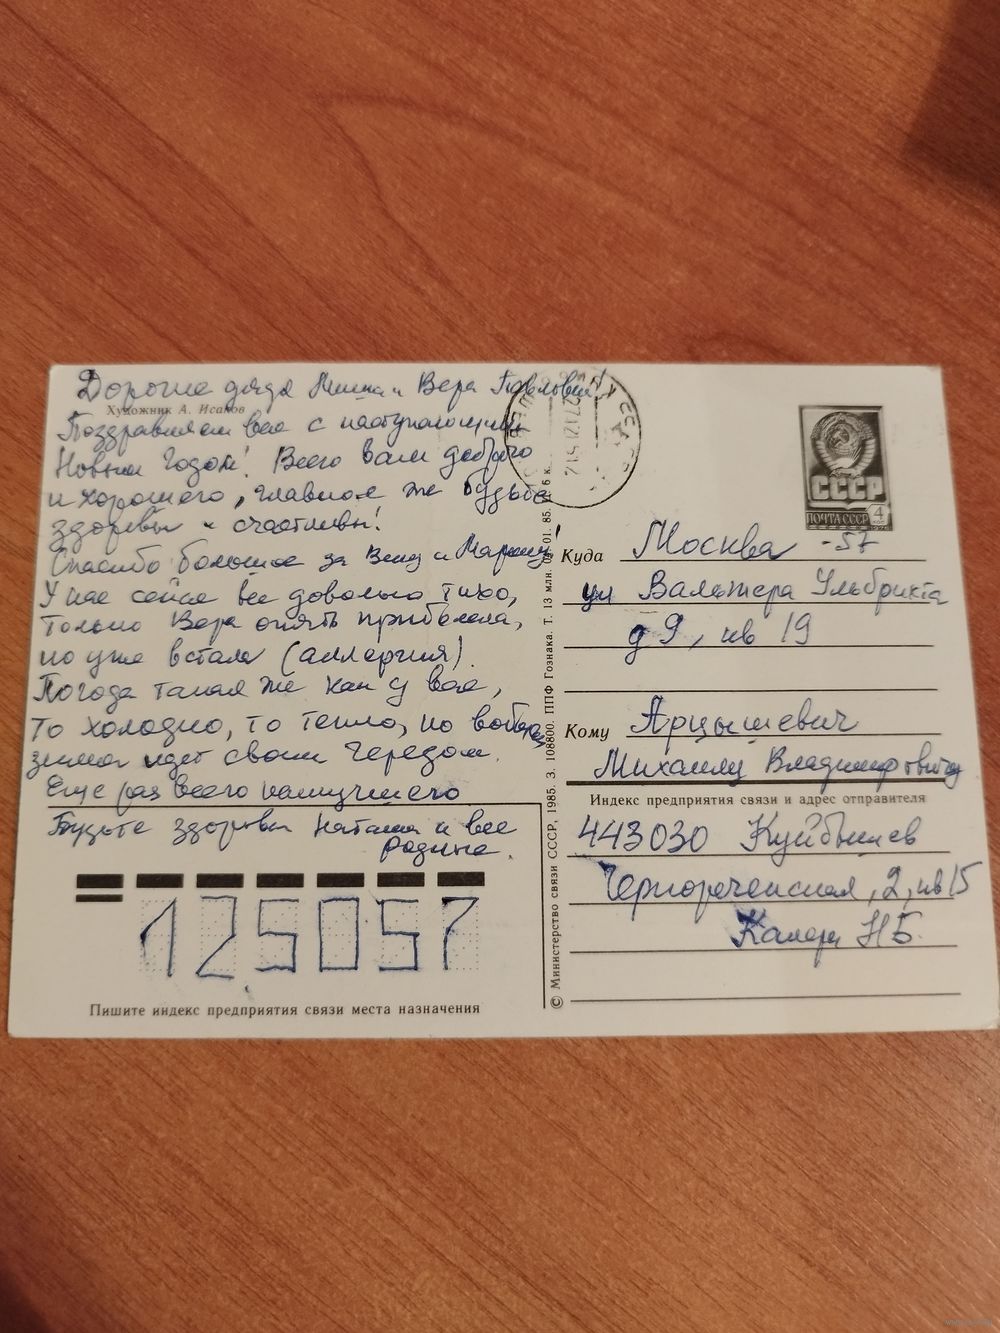 Дорогие дядя Миша и Вера Павловна!
Художник А. Исаков
Поздравляем вас с наступающим
Новым годом! Всего вам доброго
и хорошего, главное же будьте
здоровы и счастливы!
Спасибо большое за Вену и Марину!
У нас сейчас все довольно тихо,
только Вера опять приболела,
но уже встала (аллергия).
Погода такая же как у вас,
то холодно, то тепло, но
зима идет своим чередом.
Еще раз всего наилучшего
Будьте здоровы Наташа и все
родные.
125057
Пишите индекс предприятия связи места назначения
© Министерство связи СССР, 1985. З. 108800. ППФ Гознака. Т. 13 млн. 01. 85. 6 к.
СССР
ПОЧТА СССР
4
1976
Куда Москва -57
ул Вальтера Ульбрихта
д 9, кв 19
Кому Арцышевич
Михаилу Владимировичу
Индекс предприятия связи и адрес отправителя
443030 Куйбышев
Чернореченская, 2, кв 15
Н Б.